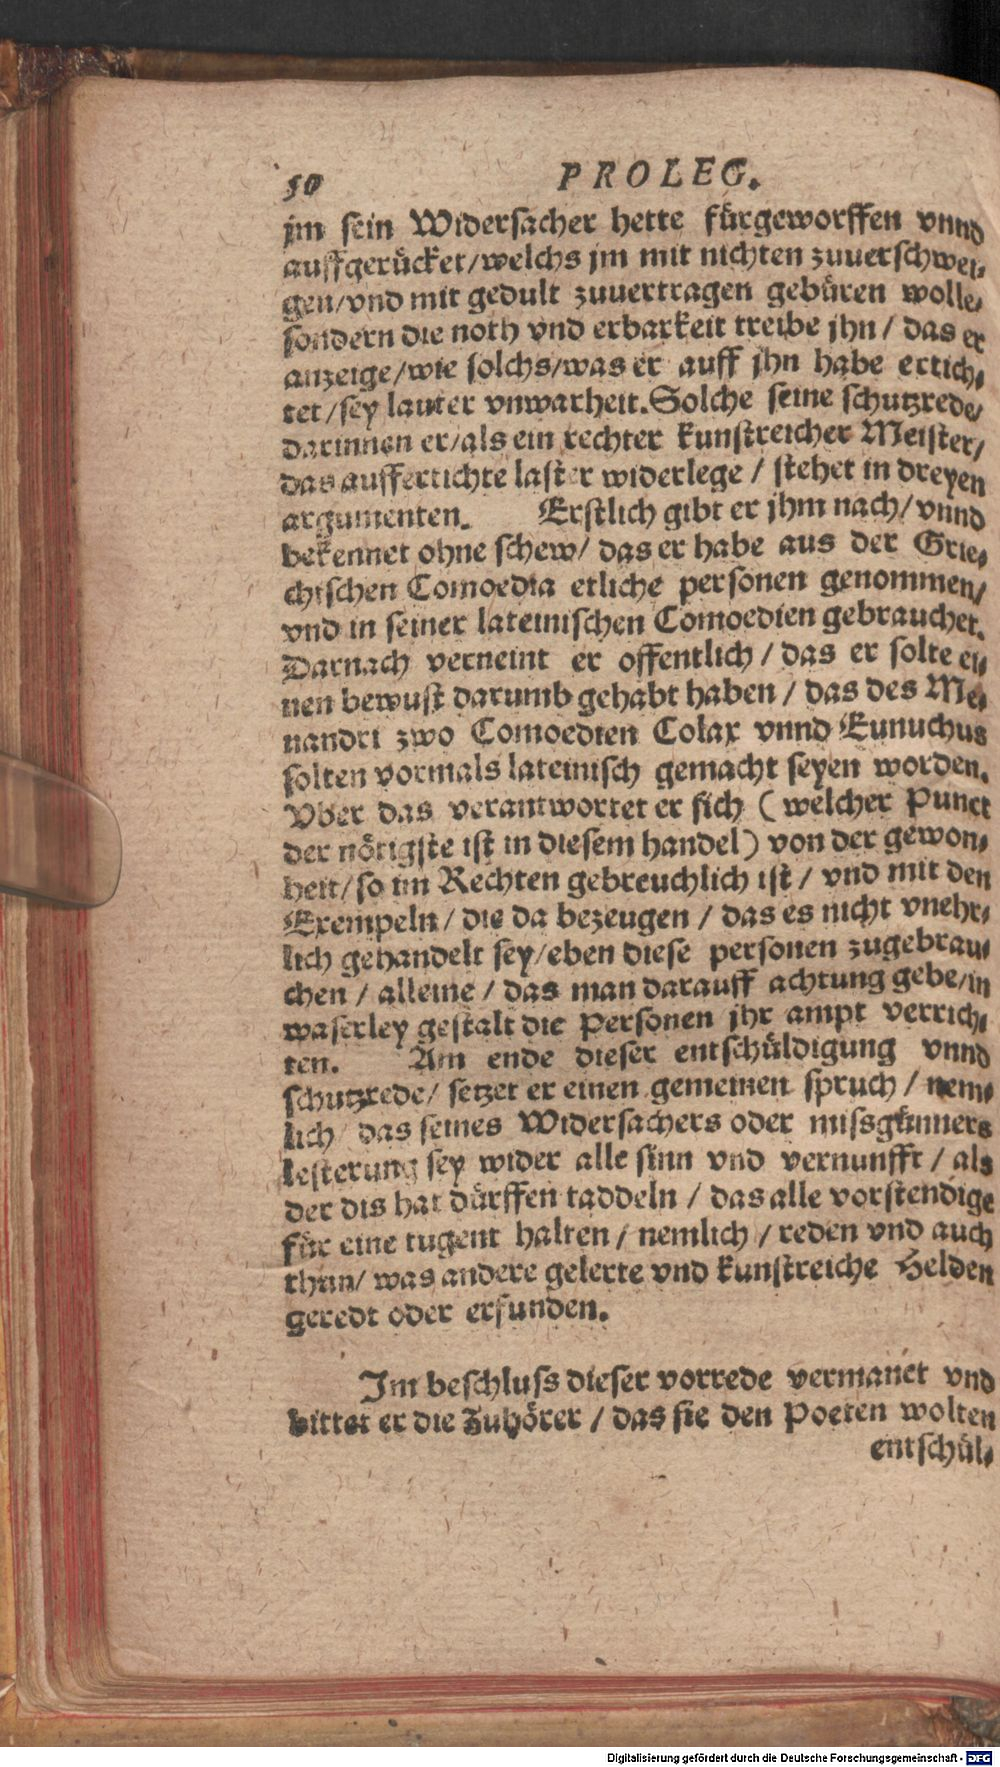 50 PROLEG.
jm sein Widersacher hette fürgeworffen vnnd
auffgerücket/welchs jm mit nichten zuuerschwei-
gen/vnd mit gedult zuuertragen gebüren wolle/
sondern die noth vnd erbarkeit treibe jhn / das er
anzeige/wie solchs/was er auff jhn habe ertich-
tet/sey lauter vnwarheit. Solche seine schutzrede/
darinnen er/als ein rechter kunstreicher Meister/
das auffertichte laster widerlege / stehet in dreyen
argumenten. Erstlich gibt er jhm nach/ vnnd
bekennet ohne schew/ das er habe aus der Grie-
chischen Comoedia etliche personen genommen/
vnd in seiner lateinischen Comoedien gebrauchet.
Darnach verneint er offentlich / das er solte ei-
nen bewust darumb gehabt haben / das des Me-
nandri zwo Comoedien Colax vnnd Eunuchus
solten vormals lateinisch gemacht seyen worden.
Vber das verantwortet er sich ( welcher Punct
der nötigste ist in diesem handel) von der gewon-
heit/ so im Rechten gebreuchlich ist / vnd mit den
Exempeln/ die da bezeugen / das es nicht vnehr-
lich gehandelt sey/eben diese personen zugebrau-
chen / alleine / das man darauff achtung gebe/in
waserley gestalt die Personen jhr ampt verrich-
ten. Am ende dieser entschüldigung vnnd
schutzrede/ setzet er einen gemeinen spruch / nem-
lich/ das seines Widersachers oder missgünners
lesterung sey wider alle sinn vnd vernunfft / als
der dis hat dürffen taddeln / das alle vorstendige
für eine tugent halten / nemlich / reden vnd auch
thun/ was andere gelerte vnd kunstreiche Helden
geredt oder erfunden.
Im beschluss dieser vorrede vermanet vnd
bittet er die Zuhörer / das sie den Poeten wolten
entschül-
Digitalisierung gefördert durch die Deutsche Forschungsgemeinschaft - DFG